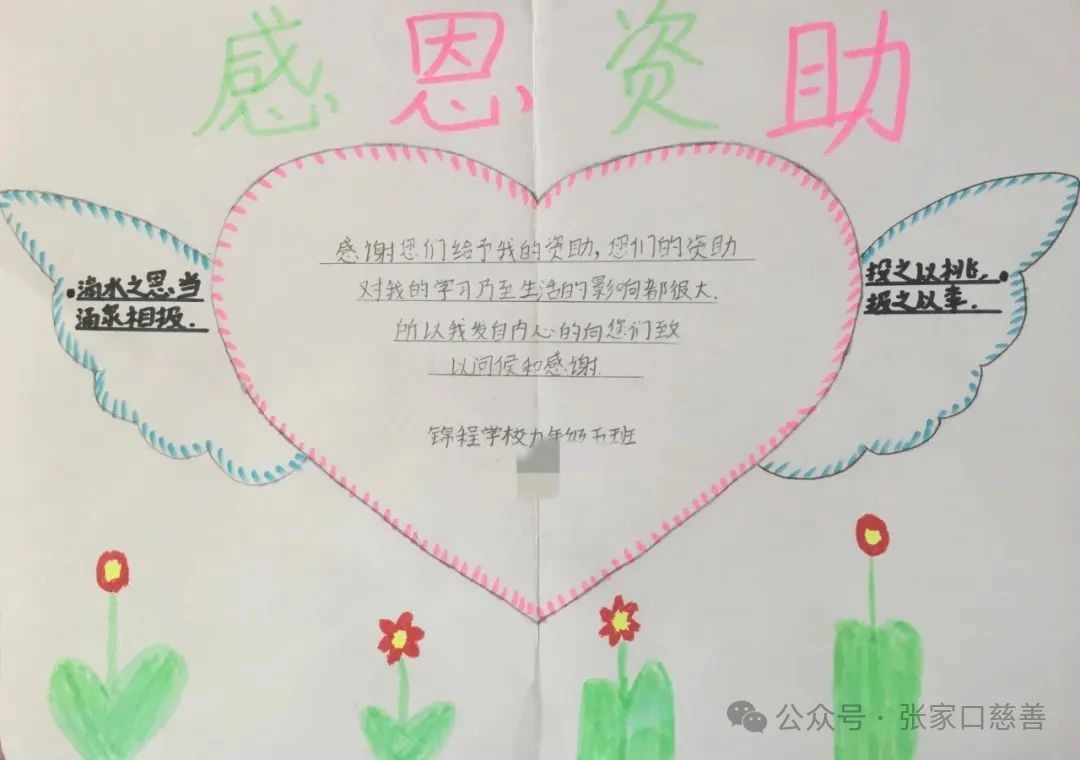 感恩资助
感谢您们给予我的资助,您们的资助
对我的学习乃至生活的影响都很大.
所以我发自内心的向您们致
以问候和感谢.
锦程学校九年级五班
·滴水之恩当
涌泉相报.
投之以桃,·
报之以李.
公众号·张家口慈善